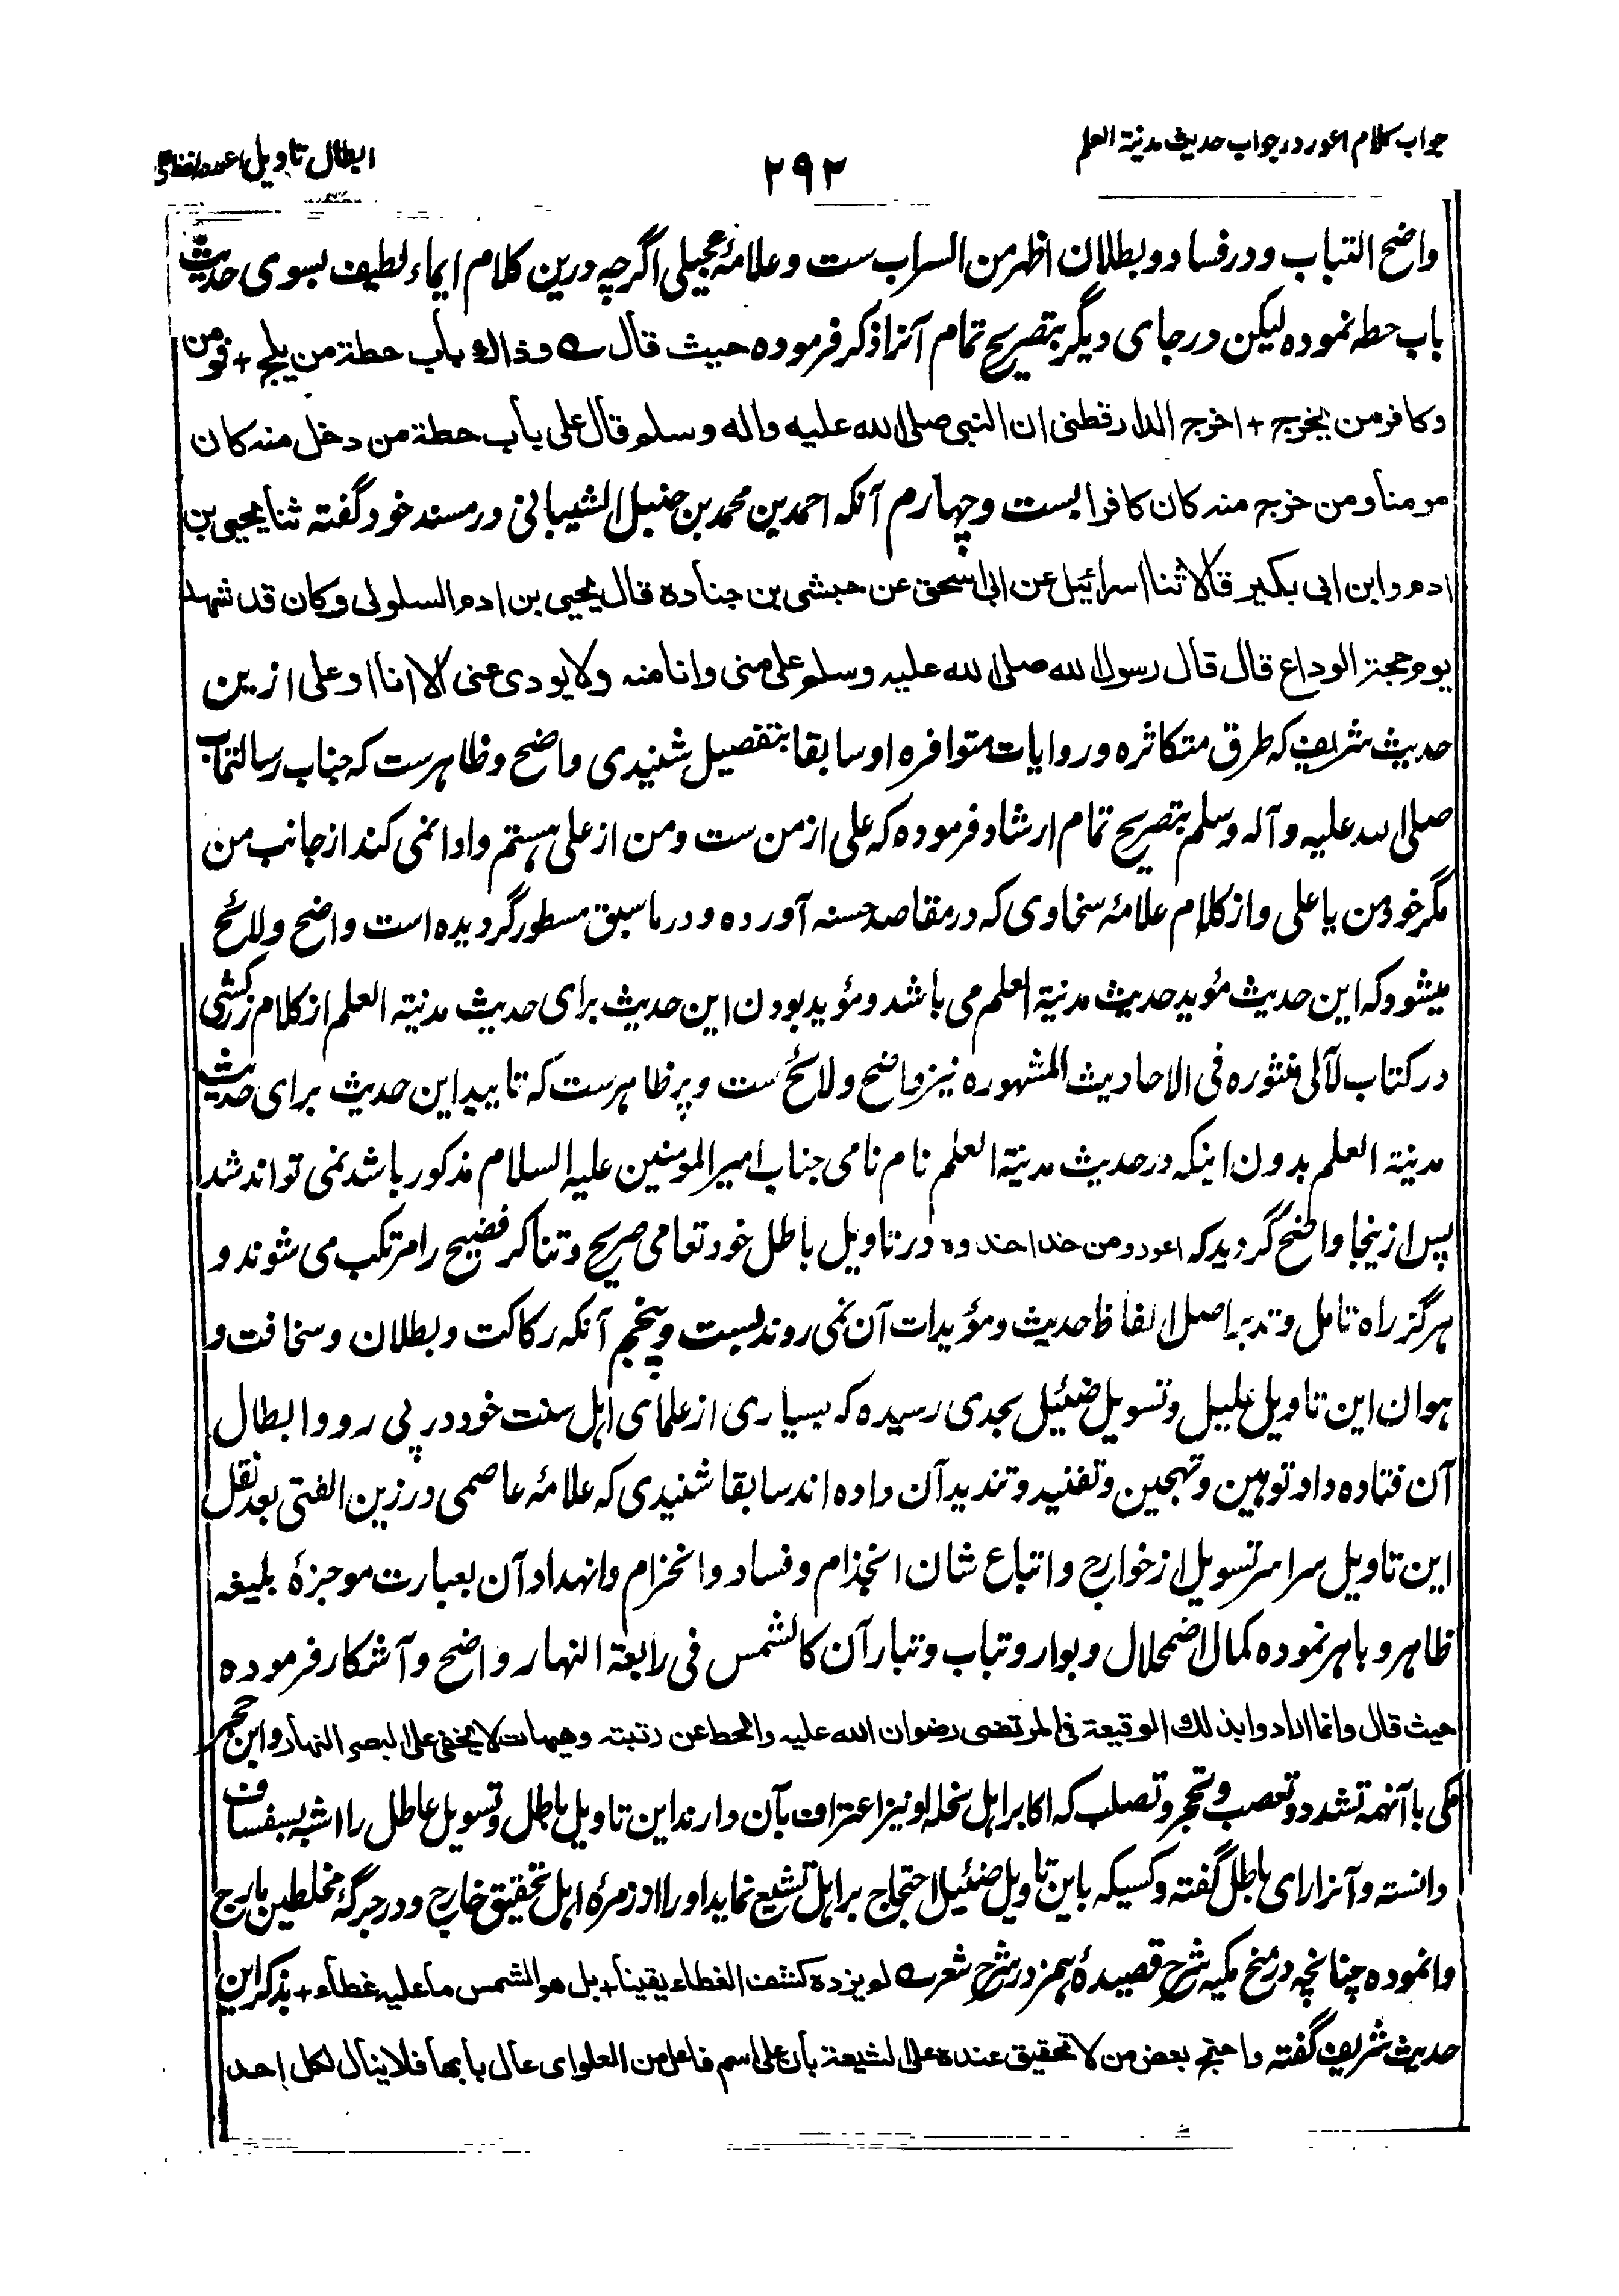 جواب کلام اعور در جواب حدیث مدینة العلم
۲۹۲
ابطال تاویل
واضح التباب و در فساد و بطلان اظهر من السراب ست و علامهٔ عجیلی اگرچه درین کلام ایماء لطیف بسوی حدیث
باب حطه نموده لیکن در جای دیگر بتصریح تمام آنرا ذکر فرموده حیث قال ے وذاك باب حطة من یلج + فومن
وکافر من یخرج + اخرج الدارقطنی ان النبی صلی الله علیه واله وسلم قال علی باب حطة من دخل منه کان
مومنا ومن خرج منه کان کافرا بست و چهارم آنکه احمد بن محمد بن حنبل الشیبانی در مسند خود گفته ثنا یحیی بن
ادم وابن ابی بکیر قالا ثنا اسرائیل عن ابی اسحق عن حبشی بن جناده قال یحیی بن ادم السلولی وکان قد شهد
یوم حجة الوداع قال قال رسول الله صلی الله علیه وسلم علی منی وانا منه ولا یودی عنی الا انا او علی ازین
حدیث شریف که طرق متکاثره و روایات متوافره او سابقا بتفصیل شنیدی واضح و ظاهرست که جناب رسالتمآب
صلی الله علیه و آله وسلم بتصریح تمام ارشاد فرموده که علی از من ست و من از علی هستم و ادا نمی کند از جانب من
مگر خود من یا علی و از کلام علامهٔ سخاوی که در مقاصد حسنه آورده و در ماسبق مسطور گردیده است واضح و لائح
میشود که این حدیث مؤید حدیث مدینة العلم می باشد و مؤید بودن این حدیث برای حدیث مدینة العلم از کلام زرکشی
در کتاب لآلی منثوره فی الاحادیث المشهوره نیز واضح و لائح ست و پر ظاهرست که تایید این حدیث برای حدیث
مدینة العلم بدون اینکه در حدیث مدینة العلم نام نامی جناب امیر المومنین علیه السلام مذکور باشد نمی تواند شد
پس ازینجا واضح گردید که اعور ومن حذا حذوه در تاویل باطل خود تعامی صریح و تناکر فضیح را مرتکب می شوند و
هرگز راه تامل و تدبر اصل الفاظ حدیث و مؤیدات آن نمی روند بست و پنجم آنکه رکاکت و بطلان و سخافت و
هوان این تاویل علیل و تسویل ضئیل بحدی رسیده که بسیاری از علمای اهل سنت خود در پی رد و ابطال
آن فتاده داد توهین و تهجین و تفنید و تندید آن داده اند سابقا شنیدی که علامهٔ عاصمی در زین الفتی بعد نقل
این تاویل سراسر تسویل از خوارج و اتباع شان انجذام و فساد و انخرام و انهداد آن بعبارت موجزهٔ بلیغه
ظاهر و باهر نموده کمال اضمحلال و بوار و تباب و تبار آن کالشمس فی رابعة النهار واضح و آشکار فرموده
حیث قال وانما ارادوا بذلك الوقیعة فی المرتضی رضوان الله علیه والحط عن رتبته وهیهات لا یخفی علی البصر النهار و ابن حجر
مکی با آنهمه تشدد و تعصب و تحجر و تصلب که اکابر اهل نحله او نیز اعتراف بآن دارند این تاویل باطل و تسویل عاطل را اشبه بسفساف
دانسته و آنرا رای باطل گفته و کسیکه باین تاویل ضئیل احتجاج بر اهل تشیع نماید او را از زمرهٔ اهل تحقیق خارج و در جرگهٔ مخلطین مارج
وا نموده چنانچه در منح مکیه شرح قصیدهٔ همزیه در شرح شعر ے لم یزده کشف الغطاء یقینا + بل هو الشمس ما علیه غطاء + بذکر این
حدیث شریف گفته واحتج بعض من لا تحقیق عنده علی الشیعة بان علی اسم فاعل من العلو ای عال بابها فلا ینال لکل احد